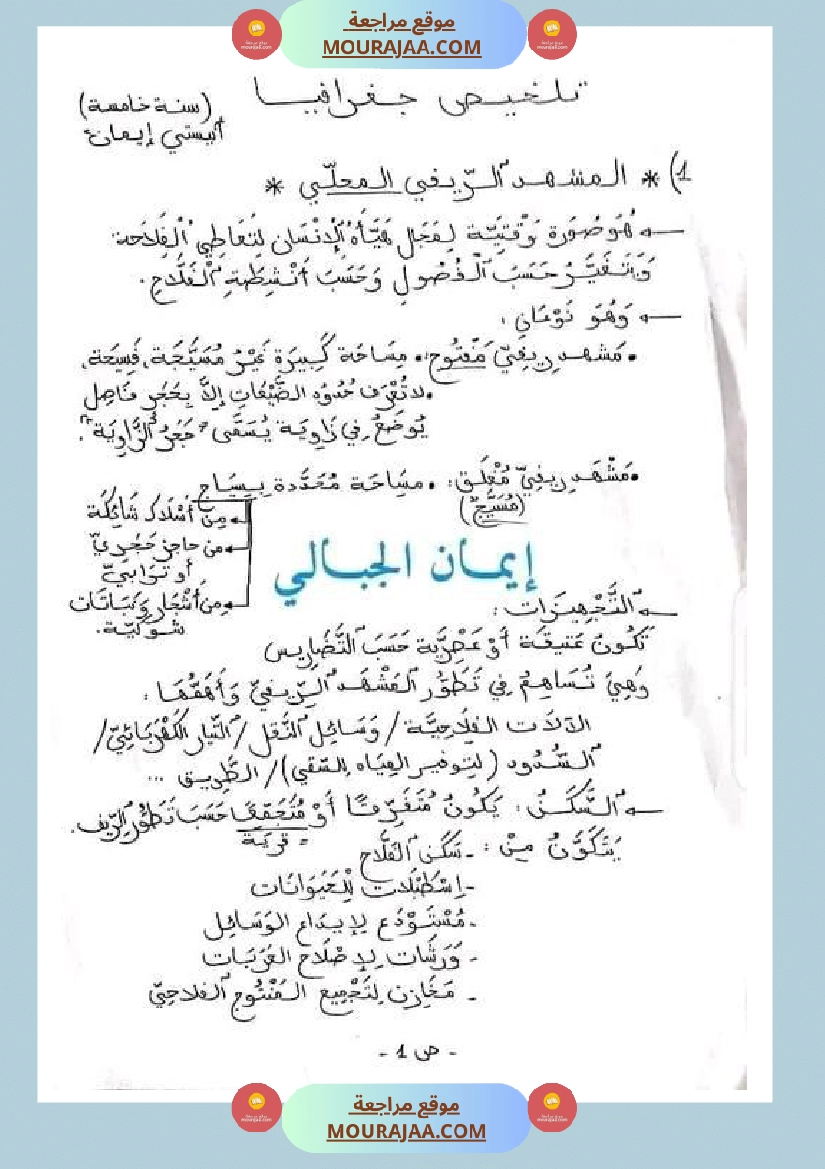 موقع مراجعة
MOURAJAA.COM
تلخيص جغرافيا
(سنة خامسة)
أنيستي إيمان
1) * المشهد الرّيفي المحلّي *
هُوَ صُورَة وَقْتِيَّة لِمَجَال هَيَّأَهُ الإِنْسَان لِتَعَاطِي الْفِلَاحَة
وَتَتَغَيَّرُ حَسَبَ الْفُصُولِ وَحَسَبَ أَنْشِطَةِ الْفَلَّاحِ.
وَهُوَ نَوْعَانِ:
• مَشْهد رِيفِيّ مَفْتُوح: • مِسَاحَة كَبِيرَة غَيْرُ مُسَيَّجَة، فَسِيحَة،
• لا تُعْرَف حُدُودُ الضَّيْعَاتِ إِلاَّ بِحَجَرٍ فَاصِل
يُوضَعُ فِي زَاوِيَة يُسَمَّى "حَجَرُ الزَّاوِيَة".
• مَشْهَد رِيفِيّ مُغْلَق: • مسَاحَة مُحَدَّدة بِسِيَاج
(مُسَيَّج)
مِنْ أَسْلَاك شَائِكَة
من حاجز حَجَرِيّ
أو تُرَابِيّ
مِنْ أَشْجَار وَنَبَاتَات
شَوْكِيَّة.
إيمان الجبالي
التَّجْهِيزَات:
تَكُونُ عَتِيقَة أَوْ عَصْرِيَّة حَسَبَ التَّضَارِيس
وَهِيَ تُسَاهِمُ فِي تَطَوُّرِ الْمَشْهَدِ الرِّيفِيِّ وَأَهَمُّهَا:
الآلَات الفِلَاحِيَّة / وَسَائِل النَّقْل / التَّيَّار الكَهْرَبَائِيّ /
السُّدُود (لِتَوفير المِيَاه لِلسَّقي) / الطَّرِيق ...
السَّكَنُ: يَكُونُ مُتَفَرِّقًا أَوْ مُتَجَمِّعًا حَسَبَ تَطَوُّرِ الرِّيف.
= قَرْيَة
يَتَكَوَّنُ مِنْ: - سَكَن الفَلَّاح
- إِسْطَبْلَات لِلْحَيَوَانَات
- مُسْتَوْدَع لِإِيدَاعِ الوَسَائِل
- وَرَشَات لِإِصْلَاح العَرَبَات
- مَخَازِن لِتَجْمِيع المَنْتُوج الفلاحِيّ
- ص 1 -
موقع مراجعة
MOURAJAA.COM